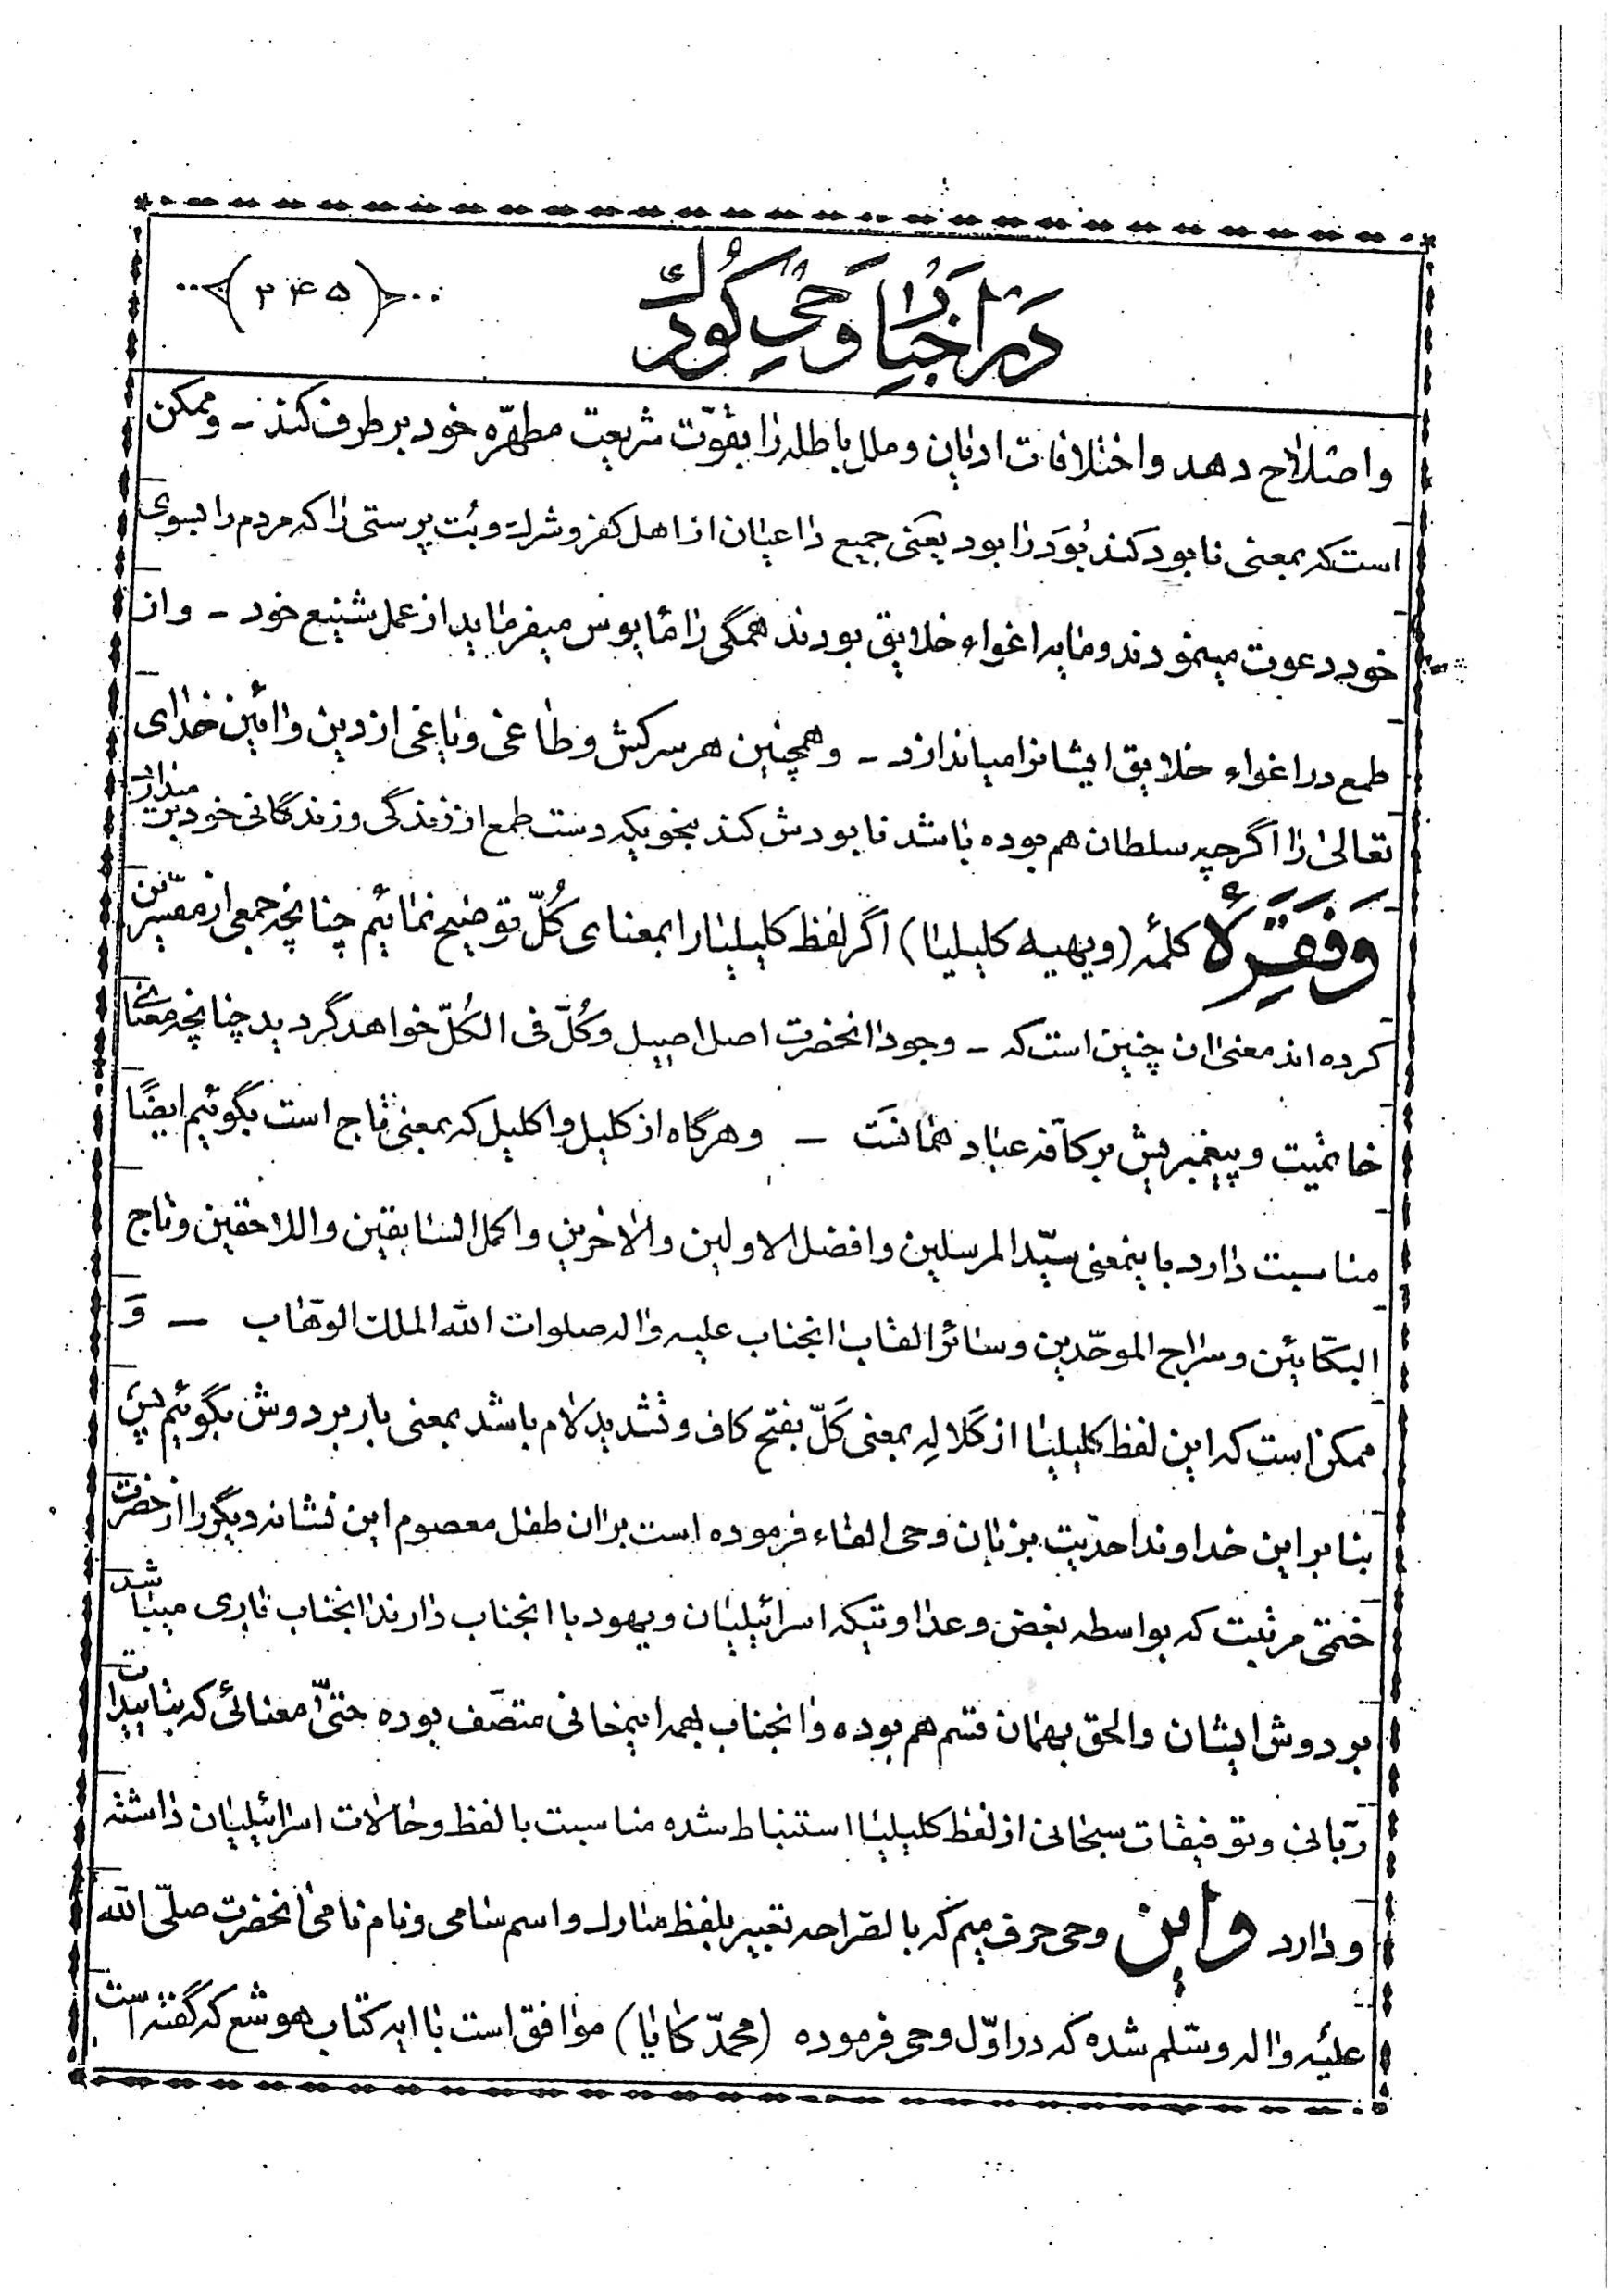 در اخبار وحی کودک
(۲۴۵)
واصلاح دهد واختلافات ادیان وملل باطله را بقوّت شریعت مطهّره خود برطرف کند - وممکن
است که بمعنی نابود کند بُوَد را بود یعنی جمیع داعیان از اهل کفر وشرك وبُت پرستی را که مردم را بسوی
خود دعوت مینمودند ومایه اغواء خلایق بودند همگی را مأیوس میفرماید از عمل شنیع خود - واز
طمع در اغواء خلایق ایشانرا میاندازد - وهمچنین هر سرکش وطاغی ویاغی از دین وائین خدای
تعالی را اگرچه سلطان هم بوده باشد نابودش کند بنحویکه دست طمع از زندگی وزندگانی خود بر میدارد
وَفَقَرِهٔ کلمهٔ (ویهیه کلیلیا) اگر لفظ کلیلیا را بمعنای کُلّ توضیح نمائیم چنانچه جمعی از مفسّرین
کرده اند معنی ان چنین است که - وجود انحضرت اصل اصیل وکُلّ فی الکُلّ خواهد گردید چنانچه معنای
خاتمیت وپیغمبریش بر کافه عباد همانست - وهرگاه از کلیل واکلیل که بمعنی تاج است بگوئیم ایضًا
مناسبت دارد باینمعنی سیّد المرسلین وافضل الاولین والاخرین واکمل السابقین واللاحقین وتاج
البکّائین وسراج الموحّدین وسائر القاب انجناب علیه واله صلوات الله الملك الوهّاب - وَ
ممکن است که این لفظ کلیلیا از کَلالِه بمعنی کَلّ بفتح کاف وتشدید لام باشد بمعنی بار بردوش بگوئیم پس
بنا براین خداوند احدّیت بزبان وحی القاء فرموده است بران طفل معصوم این نشانه دیگر را از حضرت
ختمی مرتبت که بواسطه بغض وعداوتیکه اسرائیلیان ویهود با انجناب دارند انجناب باری میباشد
بر دوش ایشان والحق بهمان قسم هم بوده وانجناب بهمه اینمعانی متصّف بوده حتّی معنائی که بتاییدات
ربّانی وتوفیقات سبحانی از لفظ کلیلیا استنباط شده مناسبت با لفظ وحالات اسرائیلیان داشته
ودارد واین وحی حرف میم که بالصّراحه تعبیر بلفظ مبارك واسم سامی ونام نامی انحضرت صلّی الله
علیه واله وسّلم شده که در اوّل وحی فرموده (محمدّ کایا) موافق است با ایه کتاب هوشع که گفته است